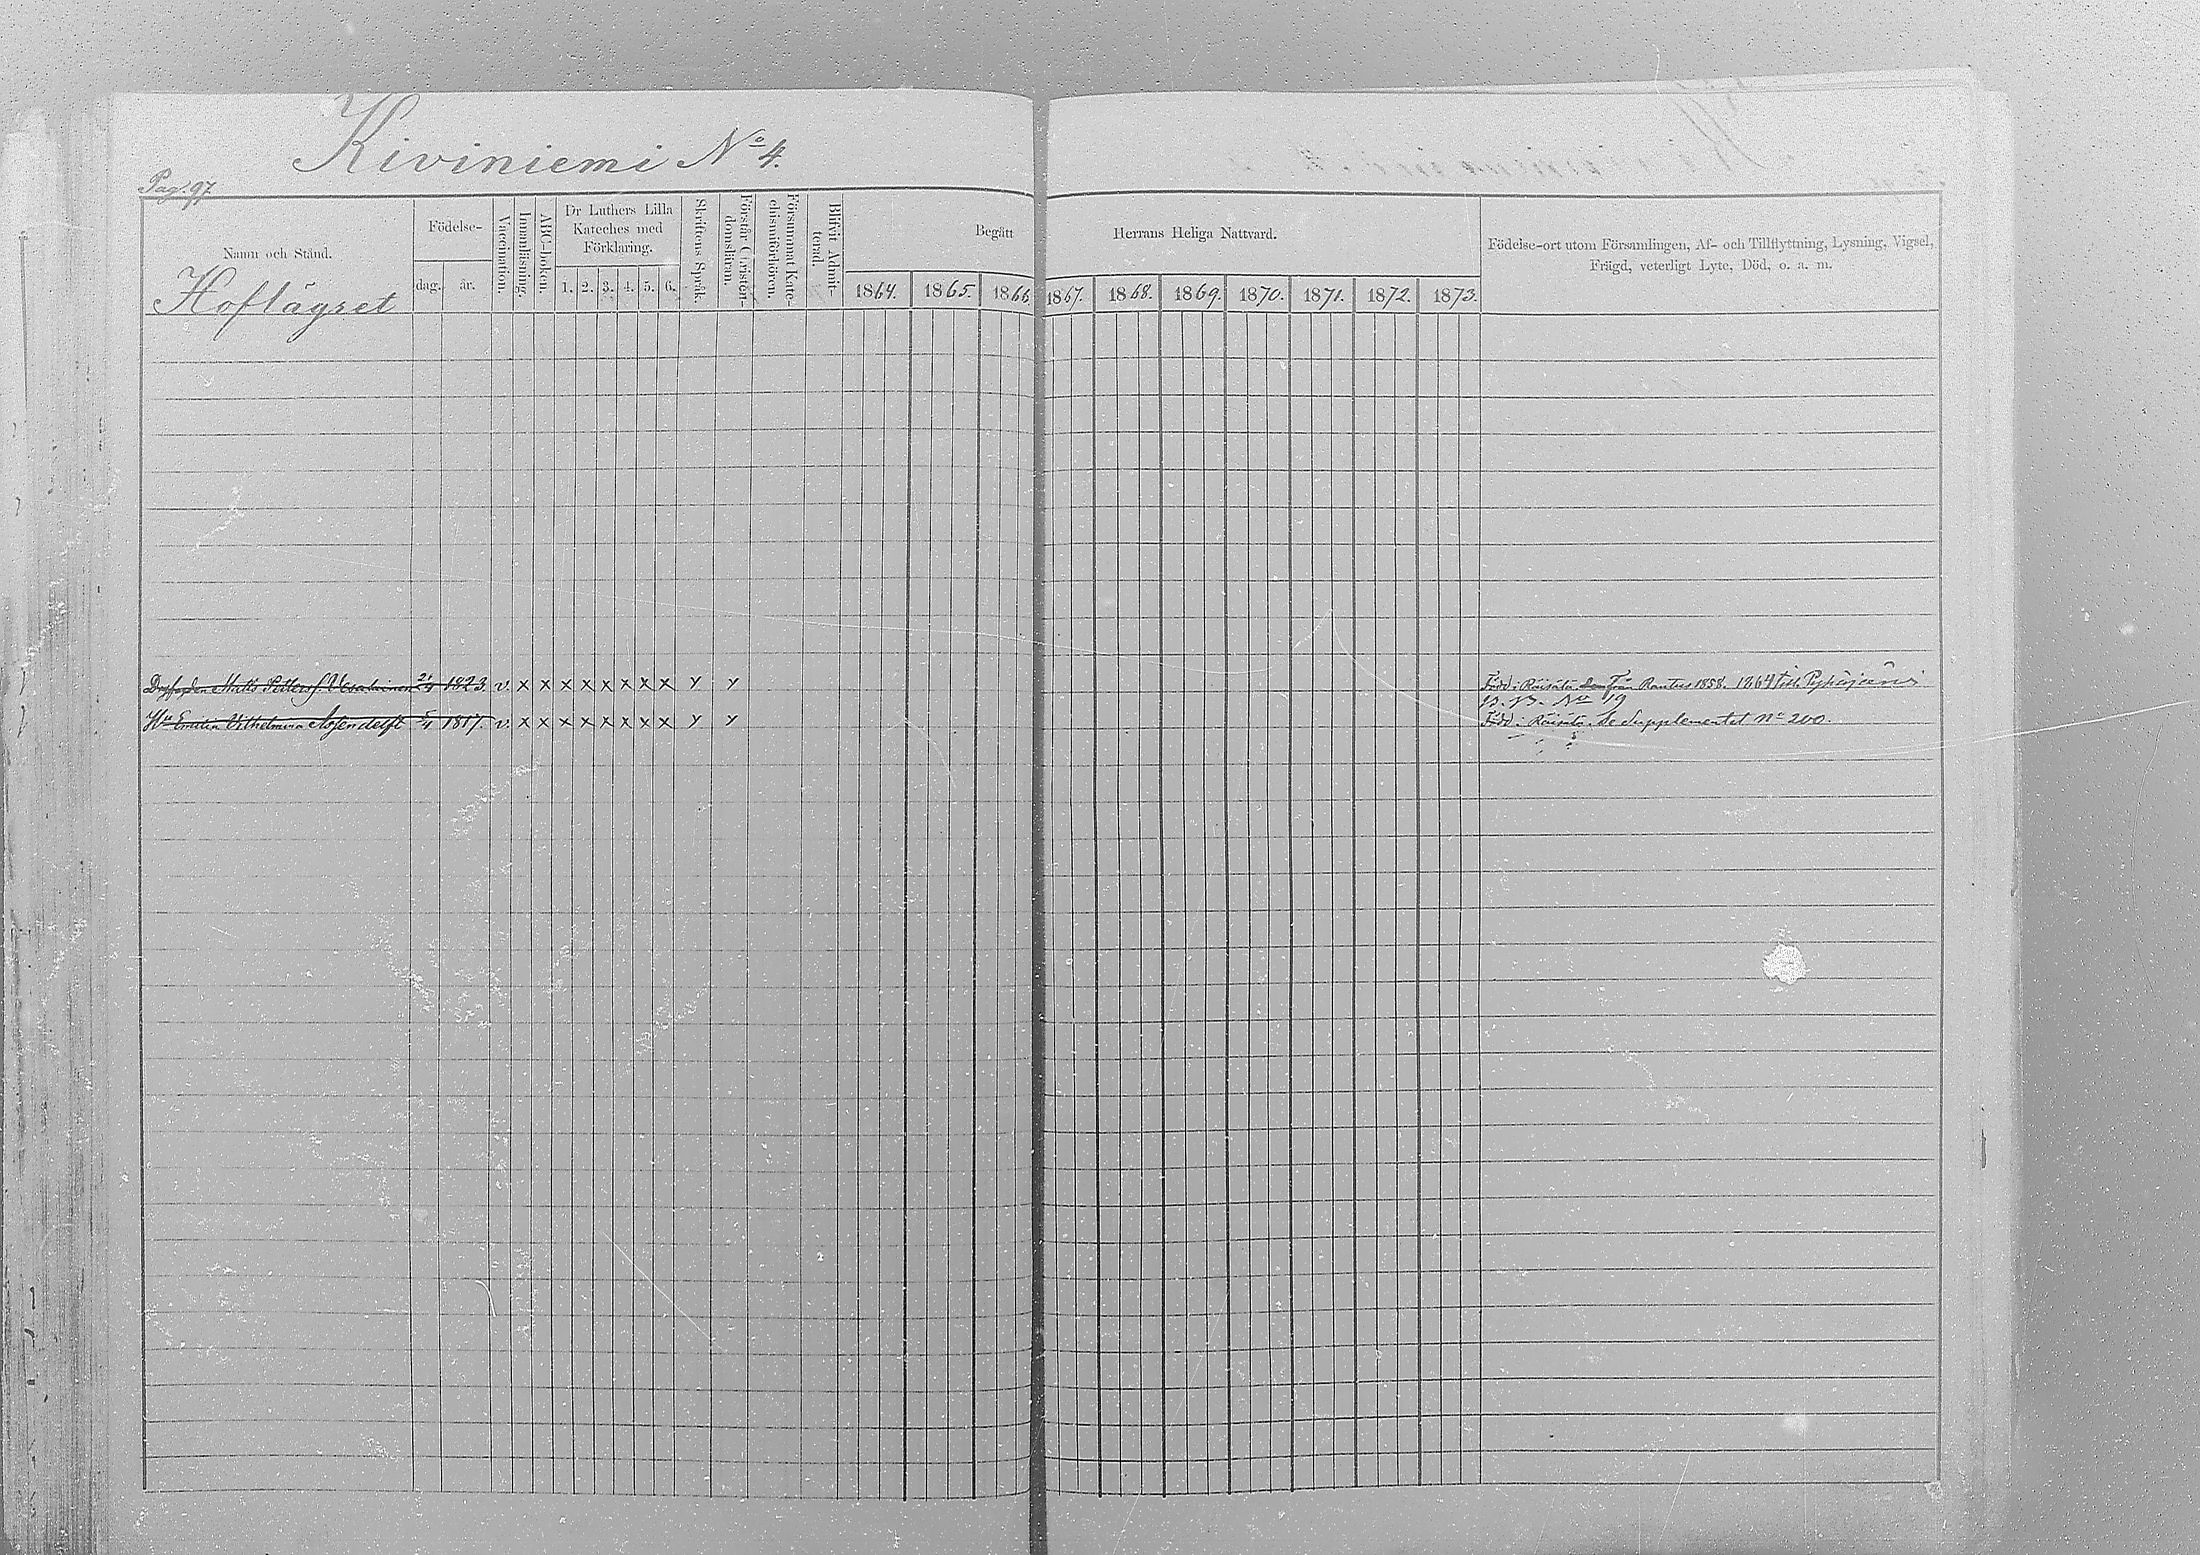 Kiviniemi No 4.
Pag. 97
Namn och Stånd.
Hoflägret
Födelse-
dag. år.
Vaccination.
Innanläsning.
ABC-boken.
Dr Luthers Lilla
Kateches med
Förklaring.
1. 2. 3. 4. 5. 6.
Skriftens Språk.
Förstår Christen-
domsläran.
Försummat Kate-
chismiförhören.
Blifvit Admit-
terad.
Begått Herrans Heliga Nattvard.
1864. 1865. 1866. 1867. 1868. 1869. 1870. 1871. 1872. 1873.
Födelse-ort utom Församlingen, Af- och Tillflyttning, Lysning, Vigsel,
Frägd, veterligt Lyte, Död, o. a. m.
Matts Petters s. Vesalainen 1823. v. x x x x x x x x y y Född i Räisälä. från Rautus 1858. 1864 till Pyhäjärvi
No 19
Hu Emilia Vilhelmina 1817. v. x x x x x x x x y y Född i Räisälä. Se Supplementet No 200.